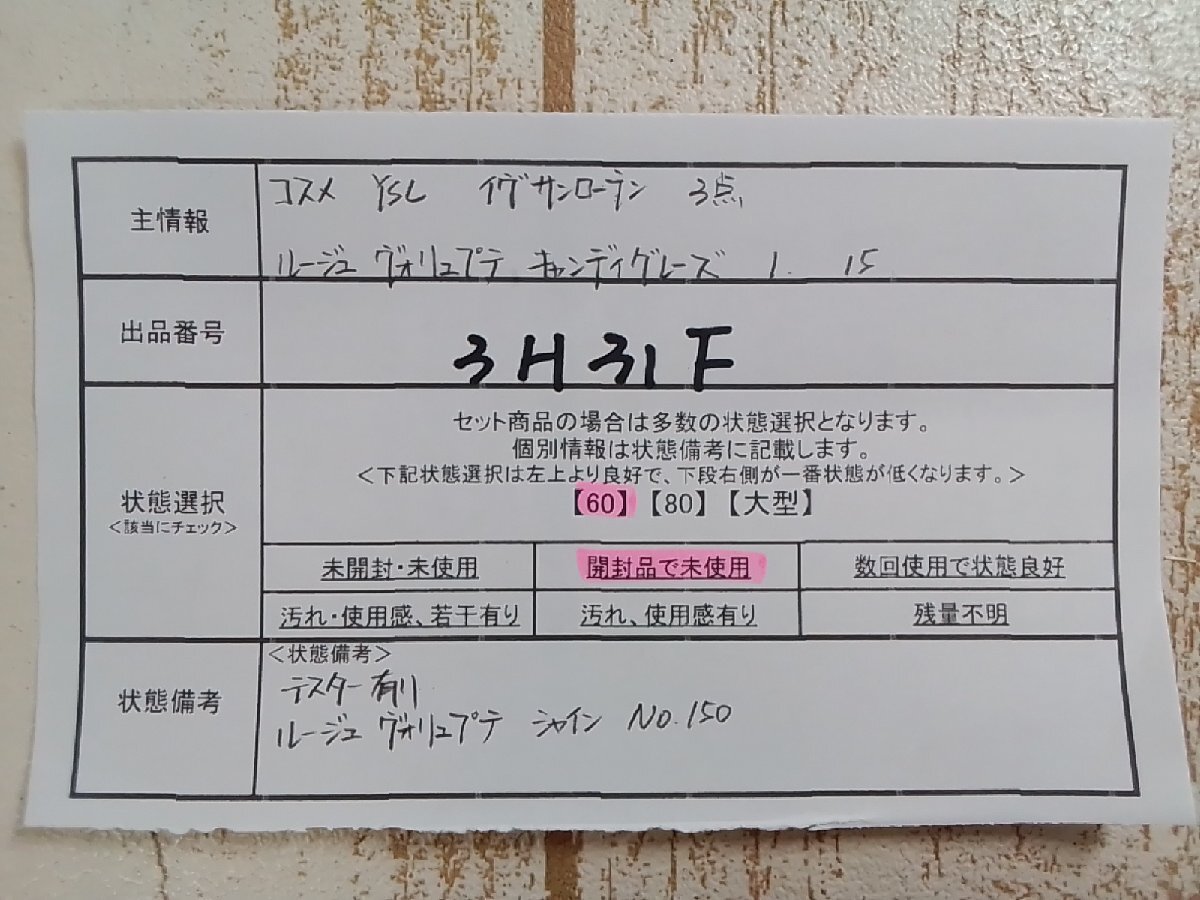 主情報
コスメ YSL イヴサンローラン 3点
ルージュ ヴォリュプテ キャンディグレーズ 1. 15
出品番号
3H31F
状態選択
<該当にチェック>
セット商品の場合は多数の状態選択となります。
個別情報は状態備考に記載します。
<下記状態選択は左上より良好で、下段右側が一番状態が低くなります。>
【60】【80】【大型】
未開封・未使用 開封品で未使用 数回使用で状態良好
汚れ・使用感、若干有り 汚れ、使用感有り 残量不明
状態備考
<状態備考>
テスター有り
ルージュ ヴォリュプテ シャイン No.150